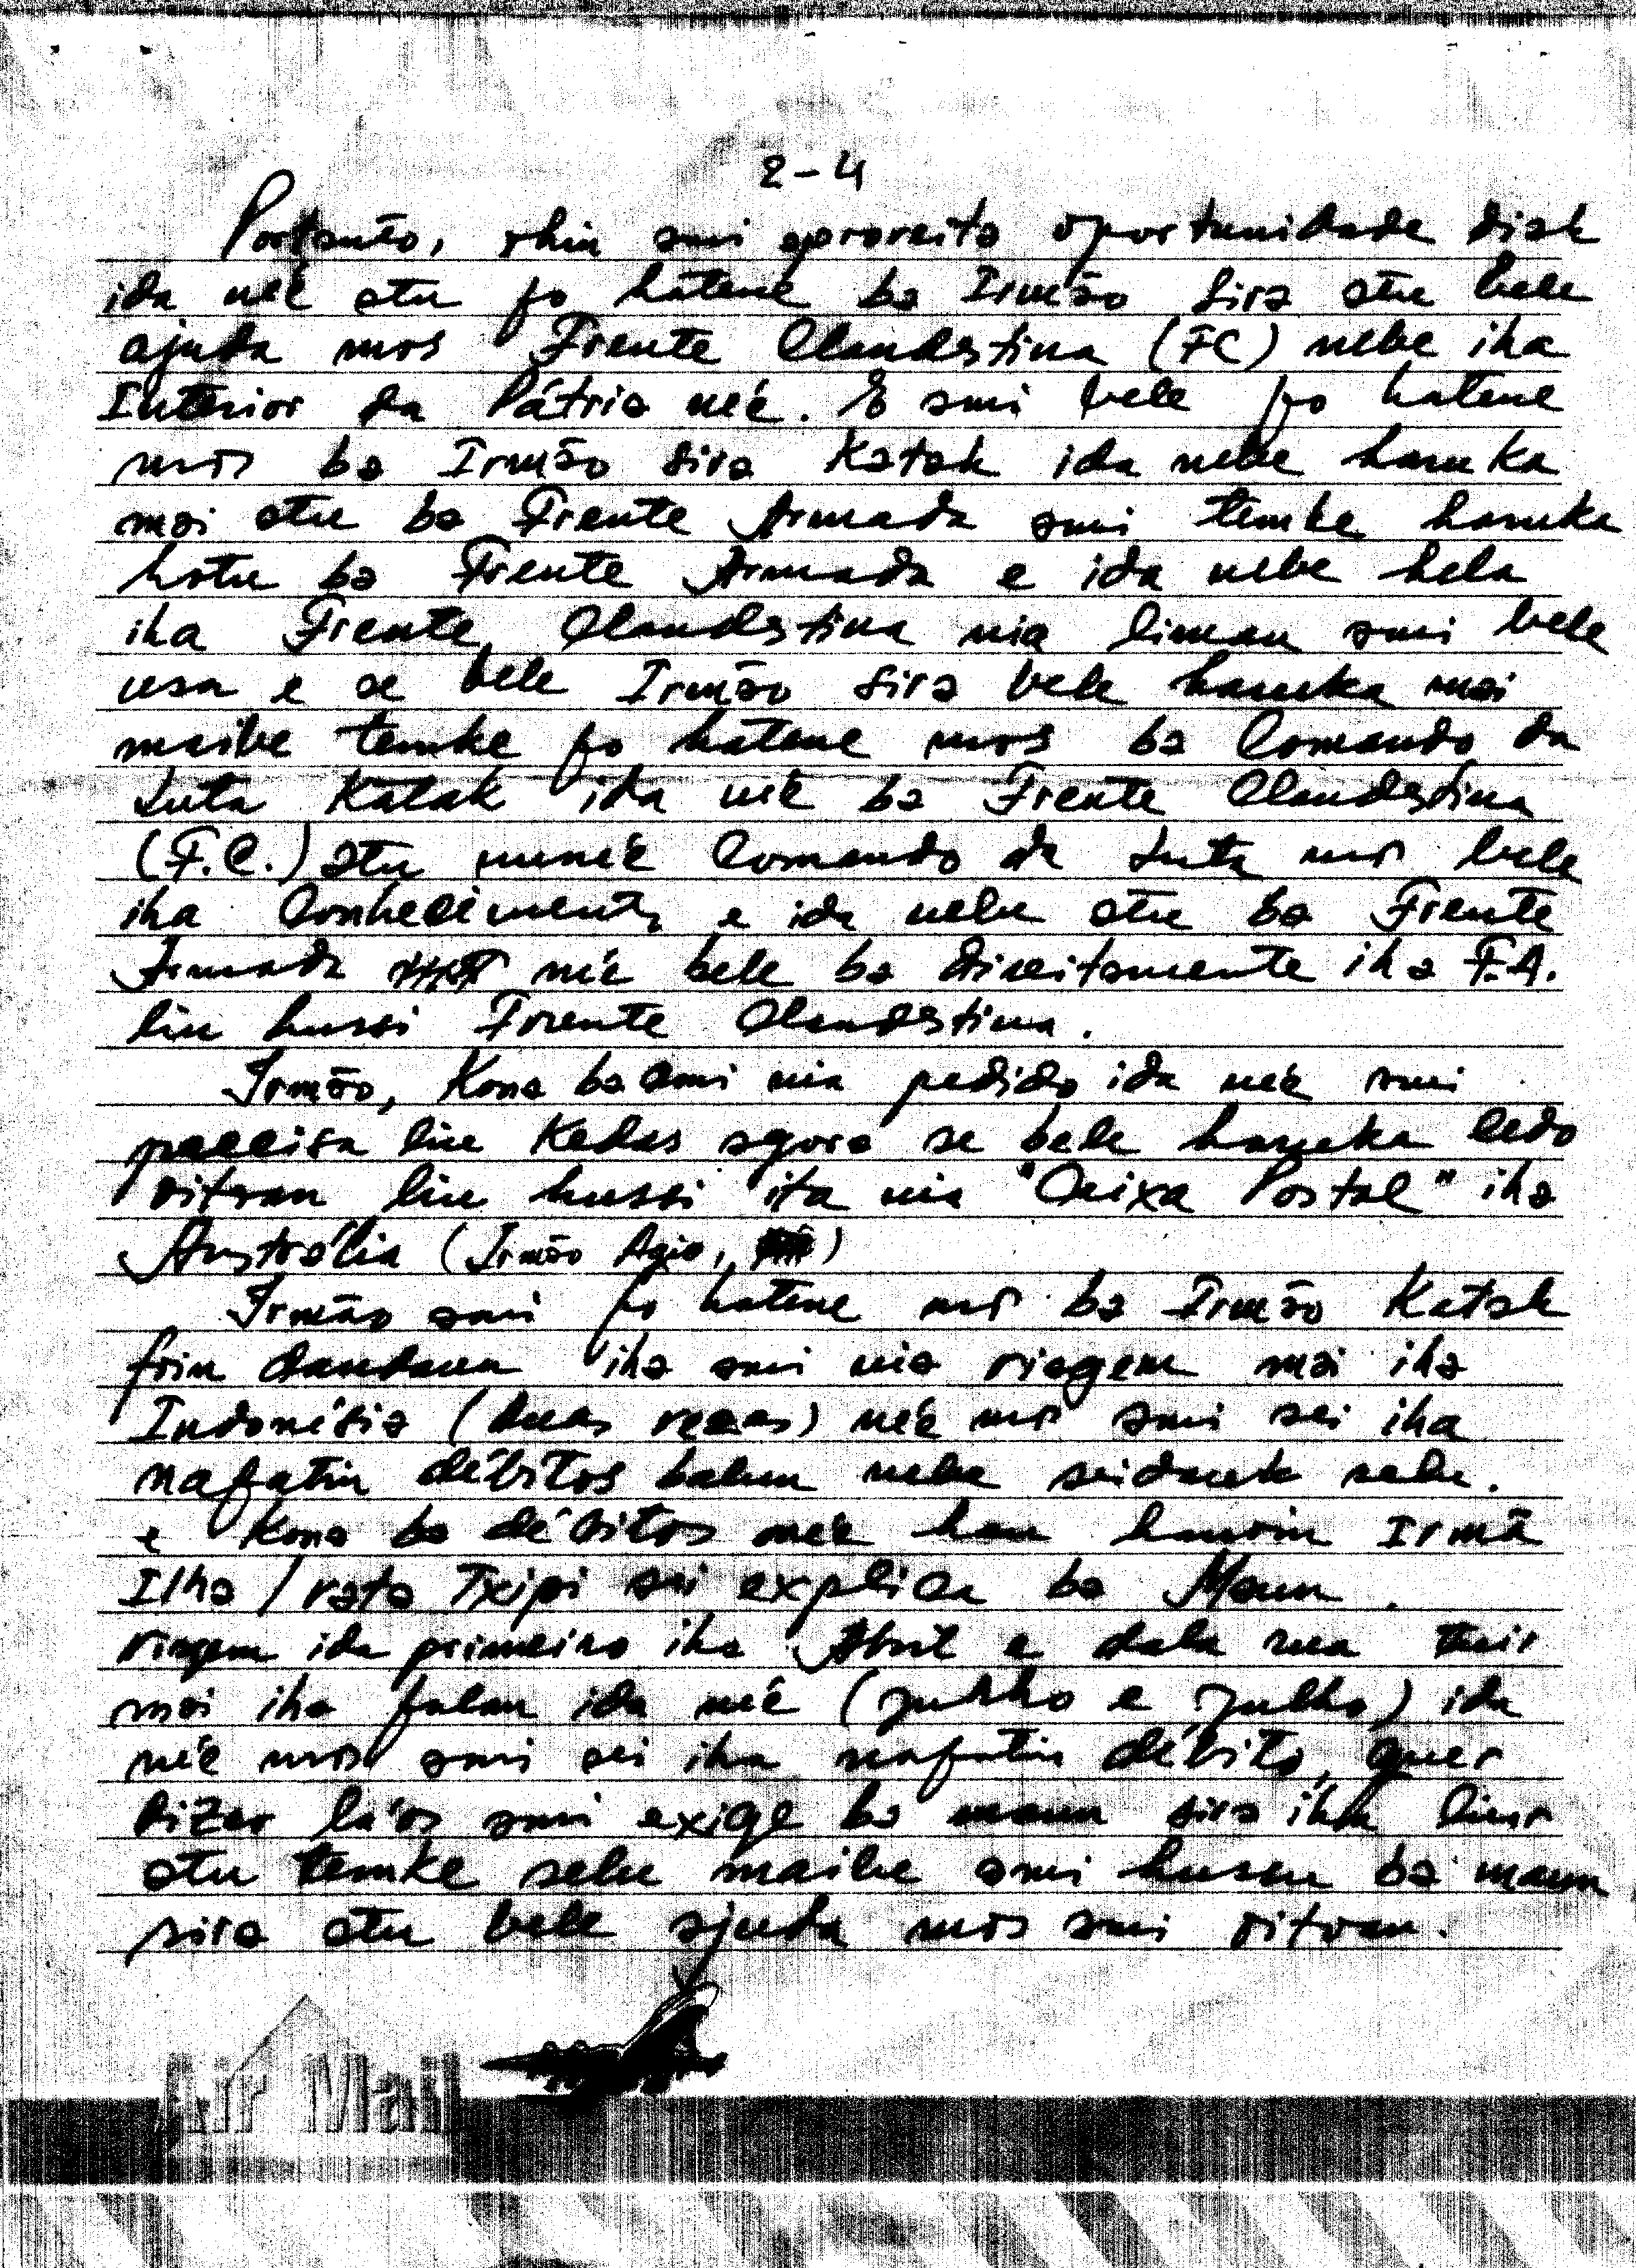 2-4
Portanto, ohin ami aproveita oportunidade diak
ida né'e atu fo hatene ba Irmão sira atu bele
ajuda mos Frente Clandestina (FC) nebe iha
Interior da Pátria né'e. E ami bele fo hatene
mos ba Irmão sira Katak ida nebe haruka
mai atu ba Frente Armada ami temke haruka
hotu ba Frente Armada e ida nebe hela
iha Frente Clandestina nia liman ami bele
usa e se bele Irmão sira bele haruka mai
maibe temke fo hatene mos ba Comando da
Luta Katak ida né'e ba Frente Clandestina
(F.C.) atu nuné'e Comando da Luta mos bele
iha Conhecimento e ida nebe atu ba Frente
Armada né'e bele ba direitamente iha F.A.
liu hussi Frente Clandestina.
Irmão, Kona ba ami nia pedido ida né'e ami
precisa liu Kedas agora se bele haruka cedo
oitoan liu hussi ita nia "Caixa Postal" iha
Austrália (Irmão Agio, )
Irmão ami fo hatene mos ba Irmão Katak
frin daudaun iha ami nia viagem mai iha
Indonésia (duas vezes) né'e mos ami sei iha
nafatin débitos balun nebe seidauk selu.
e Kona ba débitos né'e hau hamrin Irmã
Ilha / rata Txipi sei explica ba Maun.
viagem ida primeiro iha Abril e dala rua tuir
mai iha fulan ida né'e (Junho e Julho) ida
né'e mos ami sei iha nafatin débito, quer
dizer la'os ami exige ba maun sira iha liur
atu temke selu maibe ami husu ba maun
sira atu bele ajuda mos ami oitoan.
Air Mail